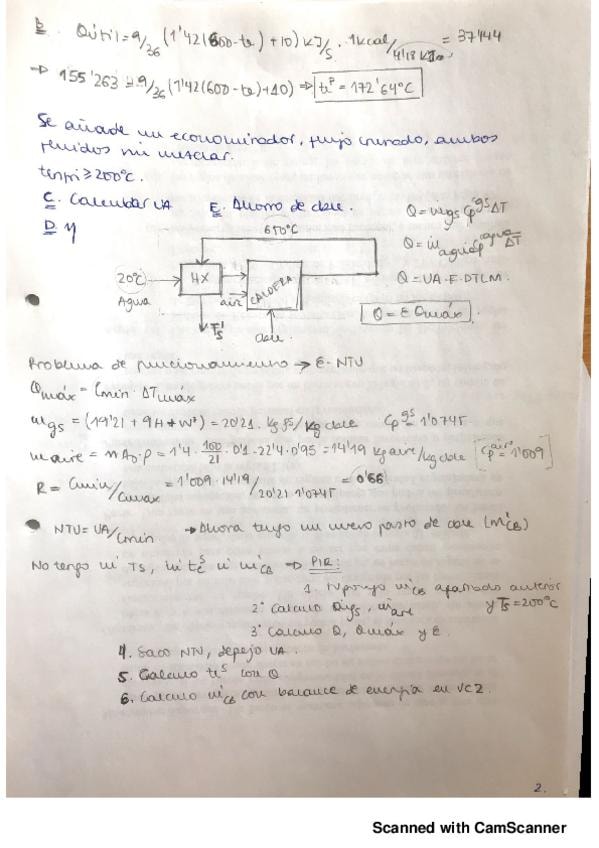 b. Qútil = 9/36 (1'42(600-te)+10) kJ/s · 1kcal/4'18 kJ = 37'444
→ 155'263 = 9/36 (1'42(600-te)+10) ⇒ te = 172'64°C
Se añade un economizador, flujo cruzado, ambos
fluidos sin mezclar.
≥200°C.
C. Calcular UA E. Ahorro de cble.
D. η
Q = mgs Cp gs ΔT
Q = m agua Cp agua ΔT
Q = UA·F·DTLM.
Q = ε Qmáx
650°C
20°C
Agua
HX
aire
CALDERA
Ts'
cble.
Problema de funcionamiento → ε-NTU
Qmáx = Cmin · ΔTmáx
mgs = (19'21 + 9H + W) = 20'21 kg gs/kg cble Cp gs = 1'0745
maire = n Ao·ρ = 1'4 · 100/21 · 0'1 · 22'4 · 0'95 = 14'19 kg aire/kg cble [Cp aire = 1'009]
R = Cmin/Cmax = 1'009·14'19/20'21·1'0745 = 0'66
NTU = UA/Cmin → Ahora tengo un nuevo gasto de cble (m'cb)
No tengo ni Ts, ni tcs ni mcb ⇒ PIR:
1. Supongo mcb apartado anterior
y Ts=200°C
2º Calculo mgs, maire
3º Calculo Q, Qmáx y ε.
4. Saco NTU, despejo UA.
5. Calculo tcs con Q
6. Calculo mcb con balance de energía en VC2.
2.
Scanned with CamScanner